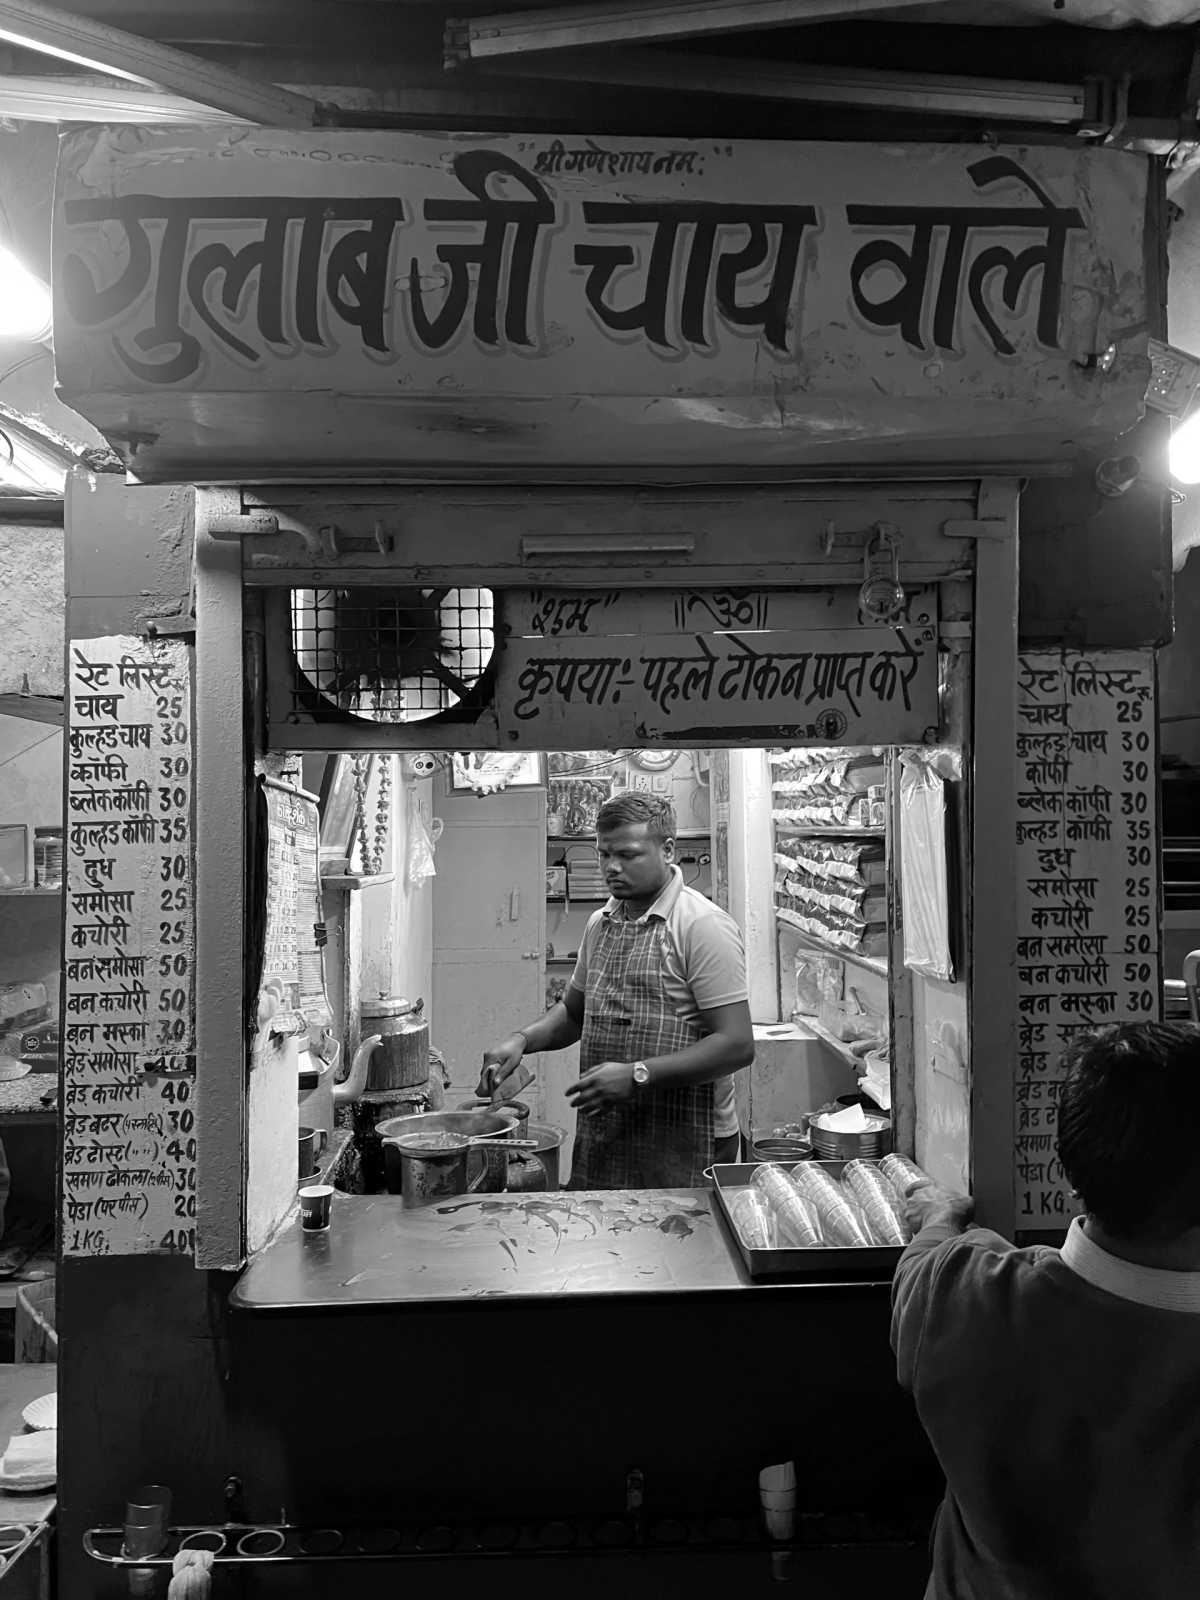 "श्री गणेशाय नमः"
गुलाब जी चाय वाले
"शुभ" ॥ ॐ ॥
कृपया:- पहले टोकन प्राप्त करें
रेट लिस्ट रु.
चाय 25
कुल्हड चाय 30
कॉफी 30
ब्लेक कॉफी 30
कुल्हड कॉफी 35
दुध 30
समोसा 25
कचोरी 25
बन समोसा 50
बन कचोरी 50
बन मस्का 30
ब्रेड समोसा 40
ब्रेड कचोरी 40
ब्रेड बटर 30
ब्रेड टोस्ट (" ") 40
खमण ढोकला 30
पेडा (पर पीस) 20
1 KG.
रेट लिस्ट रु.
चाय 25
कुल्हड चाय 30
कॉफी 30
ब्लेक कॉफी 30
कुल्हड कॉफी 35
दुध 30
समोसा 25
कचोरी 25
बन समोसा 50
बन कचोरी 50
बन मस्का 30
ब्रेड
ब्रेड
ब्रेड
ब्रेड
खमण
पेडा
1 KG.